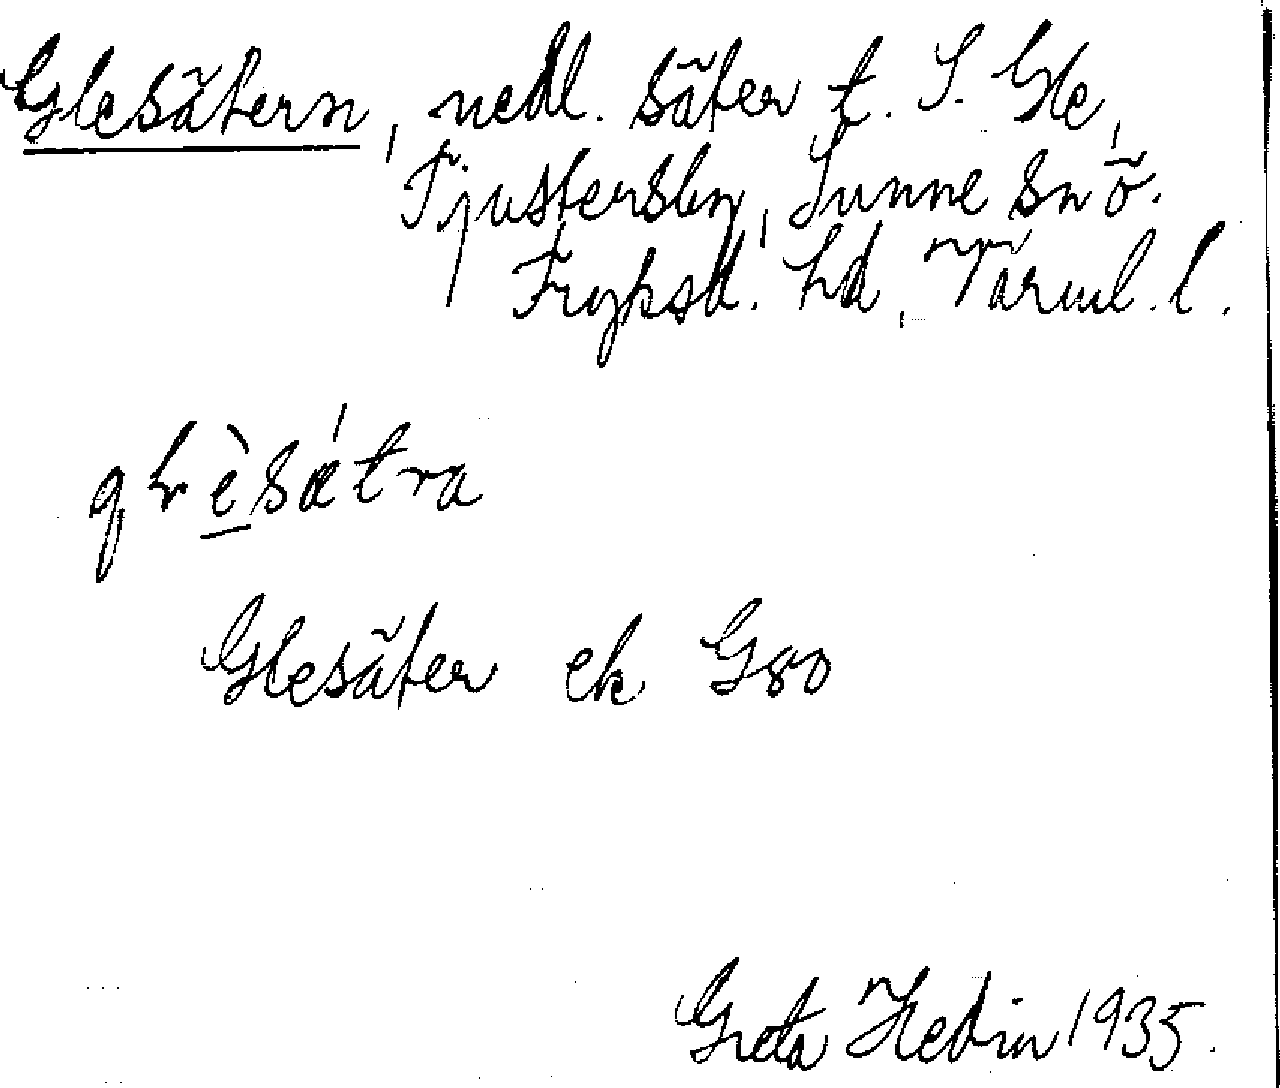 Glesätern, nedl. säter t. S. Gle,
Tjustersbn, Sunne sn ö.
Fryksd. hd, Värml. l.
Glesäter ek G80
Greta Hedin 1935.